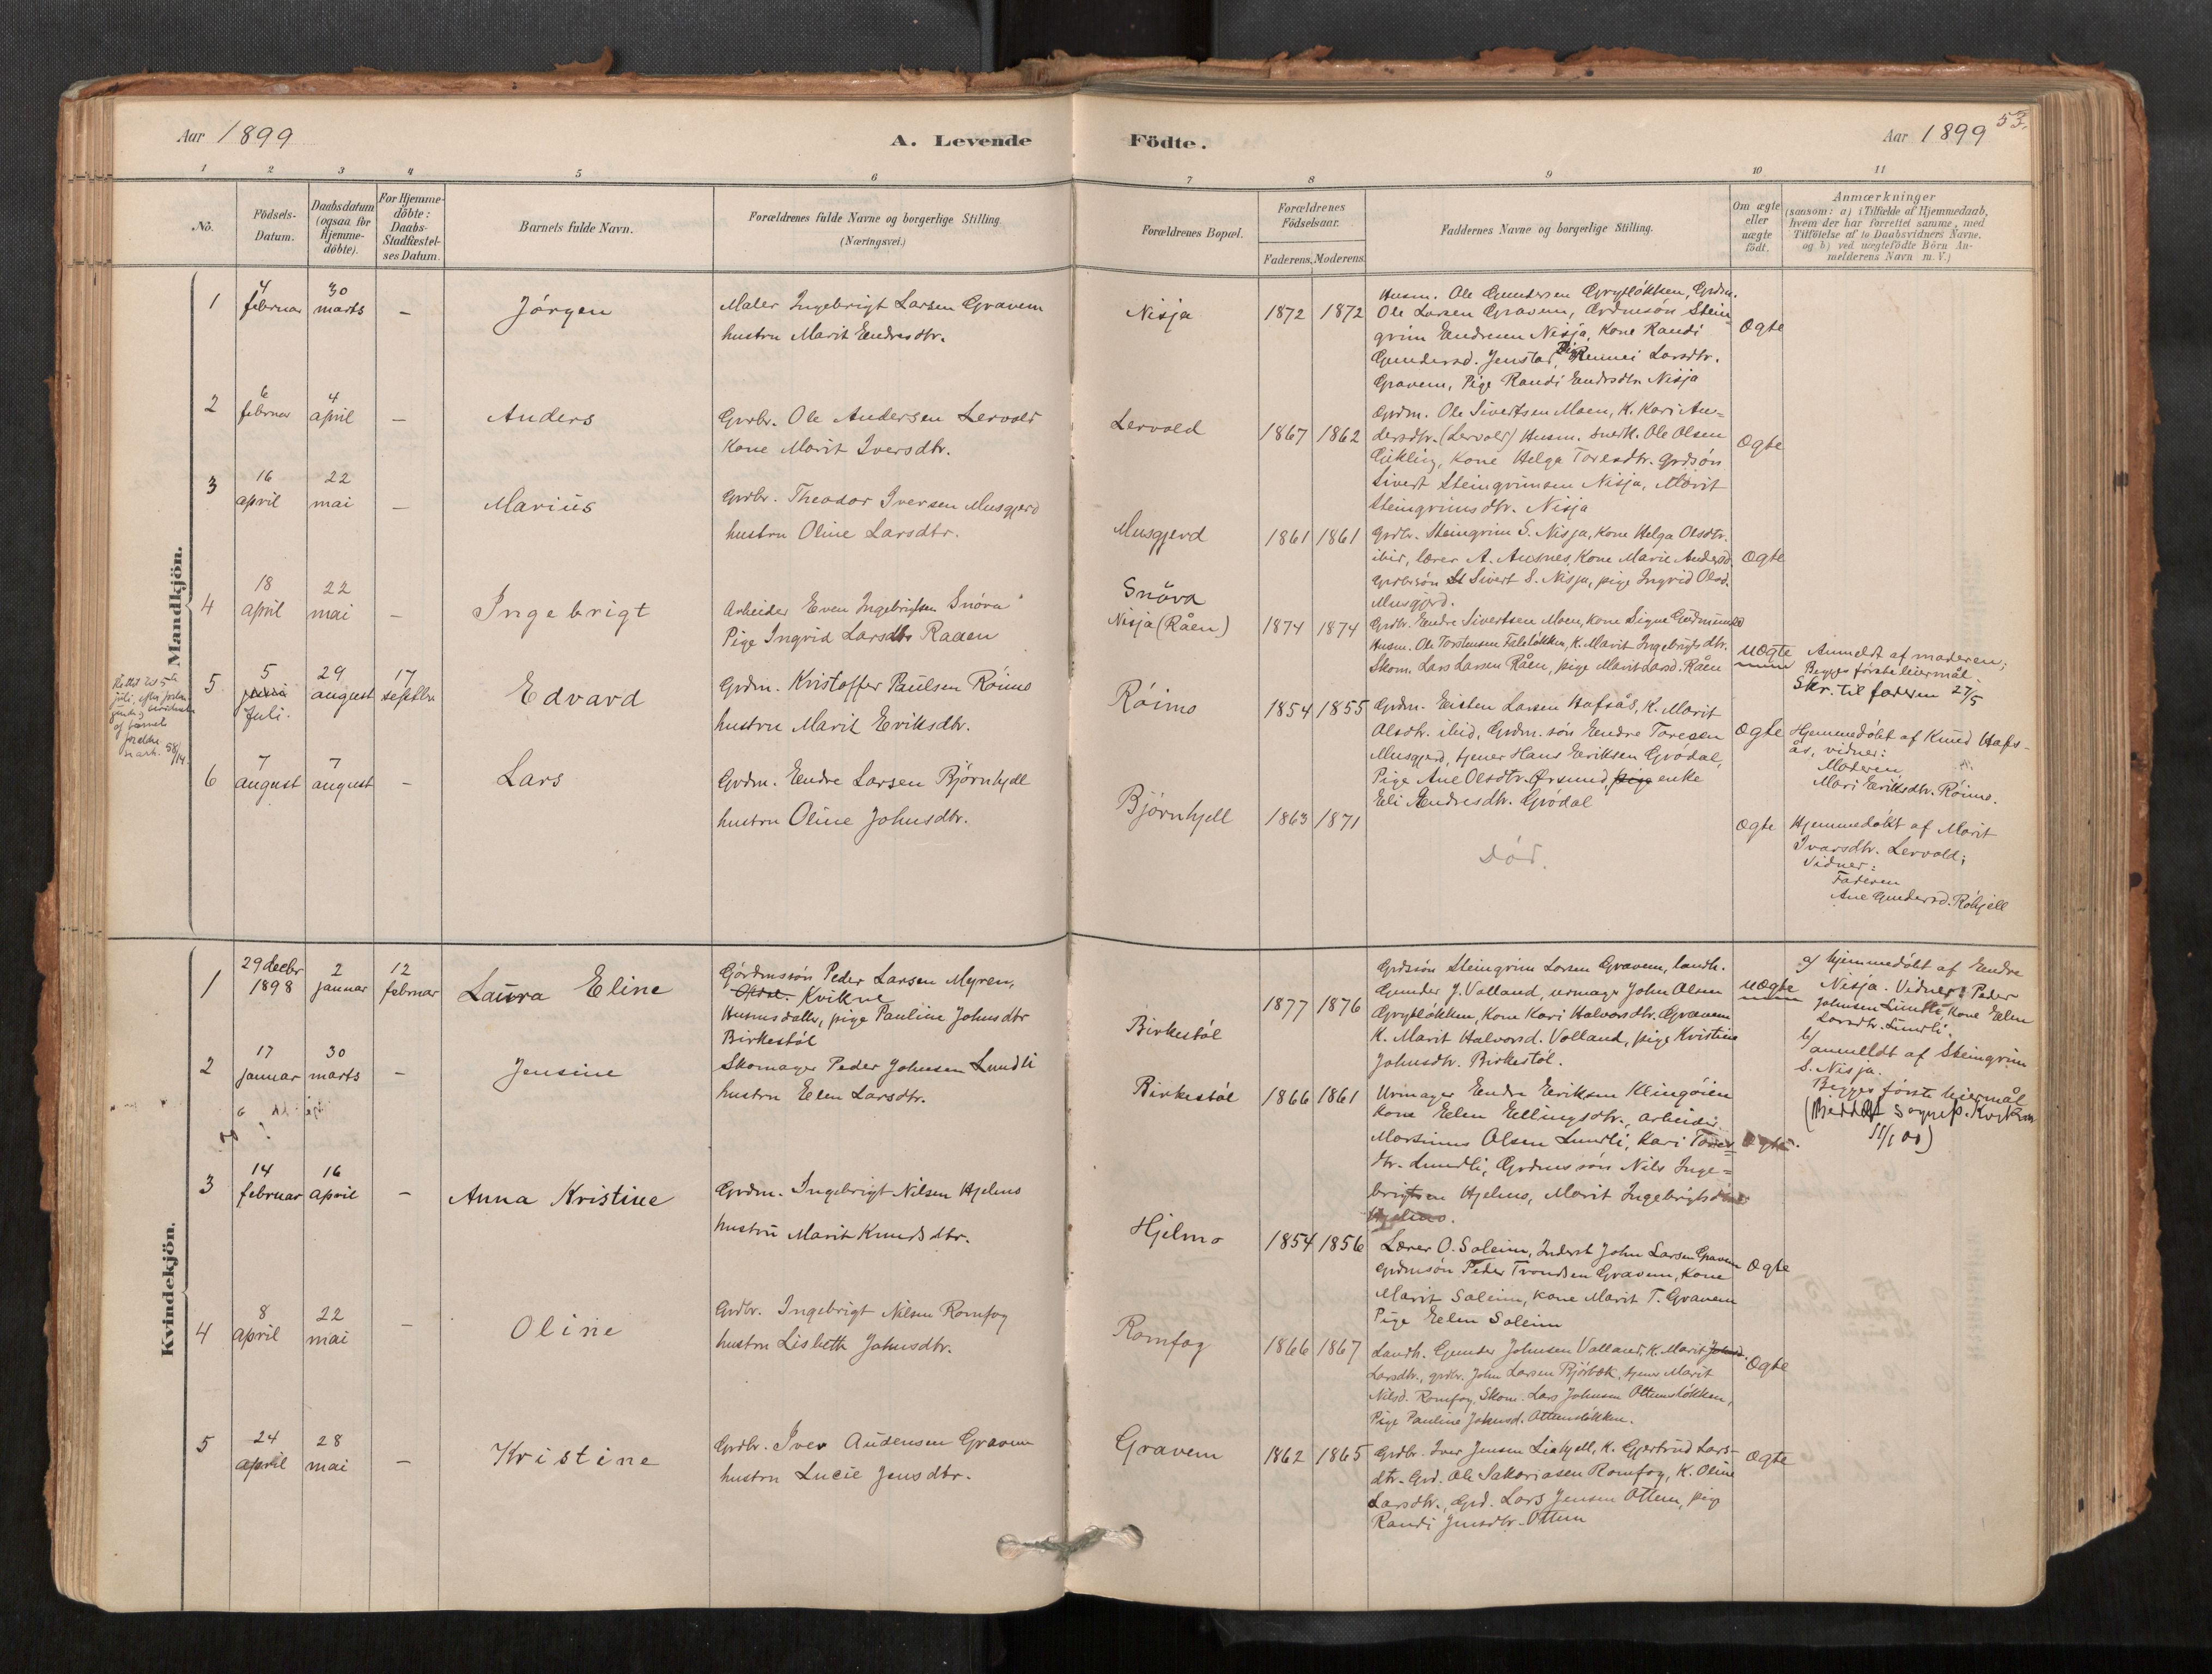 Aar 1899
A. Levende
Födte.
Aar 1899
53.
1 2 3 4 5 6 7 8 9 10 11
No.
Födsels-
Datum.
Daabsdatum
(ogsaa for
Hjemme-
döbte).
For Hjemme-
döbte:
Daabs-
Stadfæstel-
ses Datum.
Barnets fulde Navn.
Forældrenes fulde Navne og borgerlige Stilling.
(Næringsvei.)
Forældrenes Bopæl.
Forældrenes
Födselsaar.
Faderens. Moderens.
Faddernes Navne og borgerlige Stilling.
Om ægte
eller
uægte
födt.
Anmærkninger
(saasom: a) i Tilfælde af Hjemmedaab,
hvem der har forrettet samme, med
Tilföielse af to Daabsvidners Navne,
og b) ved uægtefödte Börn An-
melderens Navn m. V.)
Mandkjön.
1
4 februar
30 marts
–
Jørgen
Maler Ingebrigt Larsen Gravem
hustru Marit Endresdtr.
Nisja
1872 1872
Husm. Ole Gundersen Grytløkken, Grdm.
Ole Larsen Gravem, Grdmsøn Stein-
grim Endresen Nisja, Kone Randi
Gundersd. Jenstad, Pige Rennei Larsdtr.
Gravem, Pige Randi Endrsdtr Nisja
Ægte
2
6 februar
4 april
–
Anders
Grbr. Ole Andersen Lervold
Kone Marit Iversdtr.
Lervold
1867 1862
Grdm. Ole Sivertsen Moen, K. Kari An-
dersdtr. (Lervold) Husm. snerk. Ole Olsen
Kone Helga Toresdtr. Grdsøn
Sivert Steingrimsen Nisja, Marit
Steingrimsdtr. Nisja
Ægte
3
16 april
22 mai
–
Marius
Grbr. Theodor Iversen Musgjerd
hustru Oline Larsdtr.
Musgjerd
1861 1861
Grdbr. Steingrim S. Nisja, Kone Helga Olsdtr.
ibid, lærer A. Ansnes, Kone Marie Andersd.
Grdbrsøn Sivert S. Nisja, pige Ingrid Olsd.
Musgjerd.
Ægte
4
18 april
22 mai
–
Ingebrigt
Arbeider Even Ingebrigtsen Snöva
Pige Ingrid Larsdtr Raaen
Snöva
Nisja (Råen)
1874 1874
Grdbr. Endre Sivertsen Moen, Kone Signe Gudmundsd
Husm. Ole Torstensen Faleløkken, K. Marit Ingebrigtsdtr.
Skom. Lars Larsen Råen, pige Marit Larsd. Råen
uægte
Anmeldt af moderen;
Begges første leiermål.
Skr. til faderen 27/5
5
5 Juli.
29 august
17 septbr
Edvard
Grdm. Kristoffer Paulsen Röimo
hustru Marit Eriksdtr.
Röimo
1854 1855
Grdm. Eisten Larsen Hafsås, K. Marit
Olsdtr. ibid, Grdm. søn Endre Toresen
Musgjerd, tjener Hans Eriksen Grödal,
Pige Ane Olsdtr. Ørsund, pige enke
Eli Endresdtr. Grödal
Ægte
Hjemmedøbt af Knud Hafs-
ås, vidner:
Moderen
Mari Eriksdtr. Röimo.
6
7 august
7 august
–
Lars
Grdm. Endre Larsen Bjørnhjell
hustru Oline Johnsdtr.
Bjørnhjell
1863 1871
Död.
Ægte
Hjemmedøbt af Marit
Ivarsdtr. Lervold;
Vidner:
Faderen
Ane Gundersd. Röhjell
Kvindekjön.
1
29 decbr 1898
2 januar
12 februar
Laura Eline
Gårdmssön Peder Larsen Myren,
Opdal. Kvikne
Husmsdatter, pige Pauline Johnsdtr
Birkestöl
Birkestöl
1877 1876
Grdssøn Steingrim Larsen Gravem, landh.
Gunder J. Volland, urmager John Olsen
Grytløkken, Kone Kari Halvorsdtr. Gravem
K. Marit Halvorsd. Volland, pige Kristine
Johnsdtr. Birkestöl.
uægte
a/ hjemmedøbt af Endre
Nisja. Vidner: Peder
Johnsen Lundli, Kone Elen
Larsdtr. Lundli.
b/ anmeldt af Steingrim
S. Nisja.
Begges første leiermål
(Medd. Sognep. Kvikne
11/1 00)
2
17 januar
30 marts
–
Jensine
Skomager Peder Johnsen Lundli
hustru Elen Larsdtr.
Birkestöl
1866 1861
Urmager Endre Eriksen Klingöien
Kone Elen Ellingsdtr., arbeider
Martinus Olsen Lundli, Kari Tores-
dtr. Lundli, Grdmssön Nils Inge-
brigtsen Hjelmo, Marit Ingebrigtsdtr
Hjelmo.
Ægte.
3
14 februar
16 april
–
Anna Kristine
Grdm. Ingebrigt Nilsen Hjelmo
hustru Marit Knudsdtr.
Hjelmo
1854 1856
Lærer O. Soleim, Inderst John Larsen Gravem
Grdmsön Peder Trondsen Gravem, Kone
Marit Soleim, Kone Marit T. Gravem
Pige Elen Soleim
Ægte
4
8 april
22 mai
–
Oline
Grdbr. Ingebrigt Nilsen Romfog
hustru Lisbeth Johnsdtr.
Romfog
1866 1867
Landh. Gunder Johnsen Volland, K. Marit Johnsd.
Larsdtr., grdbr. John Larsen Bjørbæk, tjener Marit
Nilsd. Romfog, Skom. Lars Johnsen Ottemsløkken,
Pige Pauline Johnsd. Ottemsløkken.
Ægte
5
24 april
28 mai
–
Kristine
Grdbr. Iver Audensen Gravem
hustru Lucie Jensdtr.
Gravem
1862 1865
Grdbr. Iver Jensen Liahjell, K. Gjertrud Lars-
dtr. Grd. Ole Sakariasen Romfog, K. Oline
Larsdtr., Grd. Lars Jensen Ottem, pige
Randi Jensdtr. Ottem
Ægte